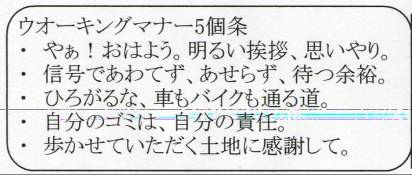 ウオーキングマナー5個条
・ やぁ！おはよう。明るい挨拶、思いやり。
・ 信号であわてず、あせらず、待つ余裕。
・ ひろがるな、車もバイクも通る道。
・ 自分のゴミは、自分の責任。
・ 歩かせていただく土地に感謝して。